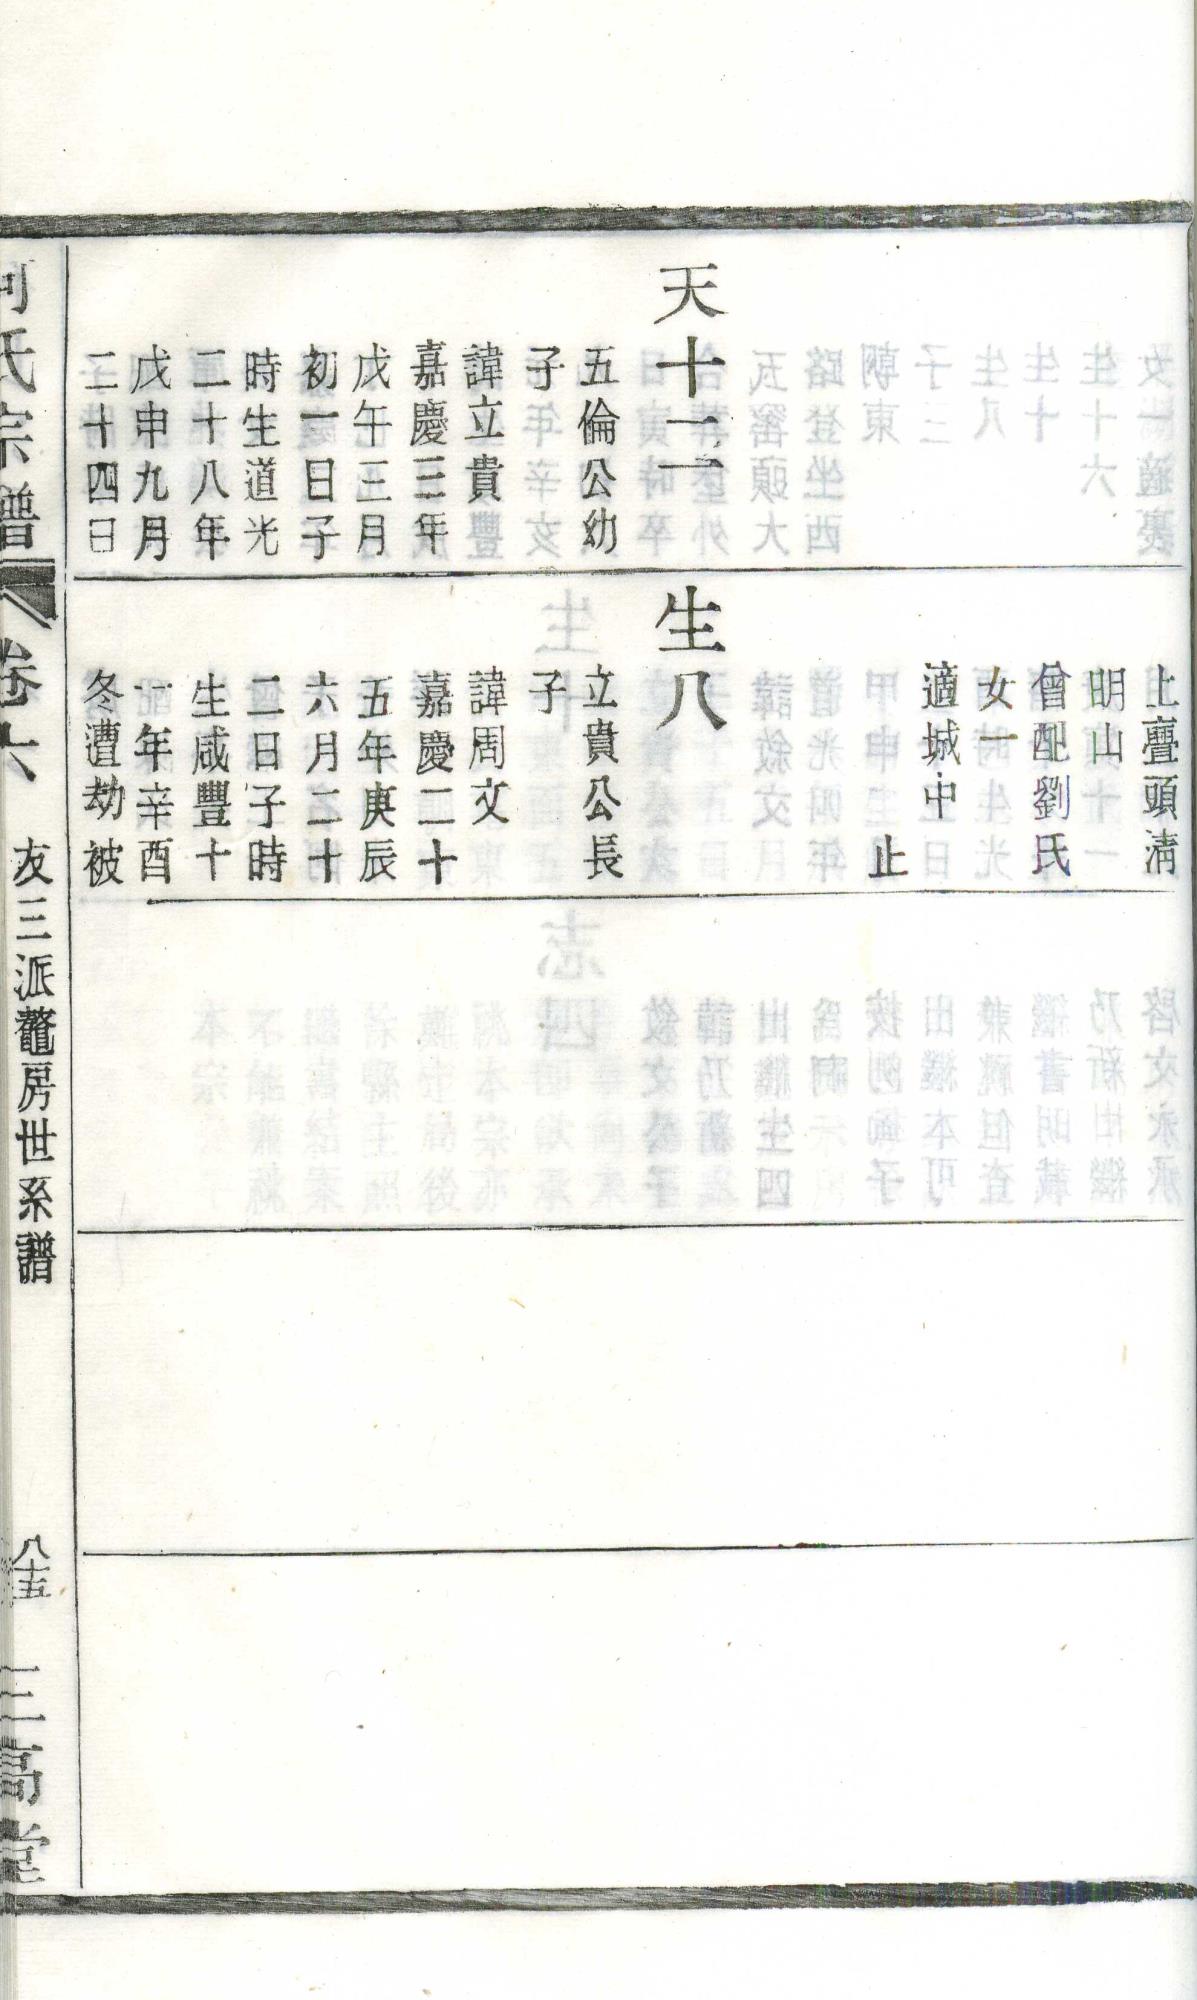 天十二
五倫公幼
子
諱立貴
嘉慶三年
戊午三月
初一日子
時生道光
二十八年
戊申九月
二十四日
上亹頭淸
明山
曾配劉氏
女一
適城中
止
生八
立貴公長
子
諱周文
嘉慶二十
五年庚辰
六月二十
二日子時
生咸豐十
一年辛酉
冬遭劫被
何氏宗譜
卷六
友三派鼇房世系譜
八十五
三高堂